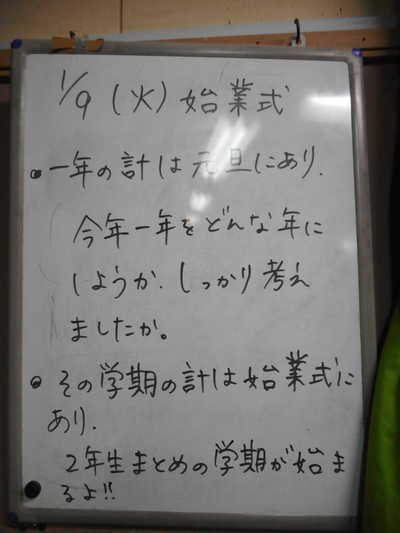 1/9(火)始業式
・一年の計は元旦にあり.
今年一年をどんな年に
しようか.しっかり考え
ましたか。
・その学期の計は始業式に
あり.
2年生まとめの学期が始ま
るよ!!